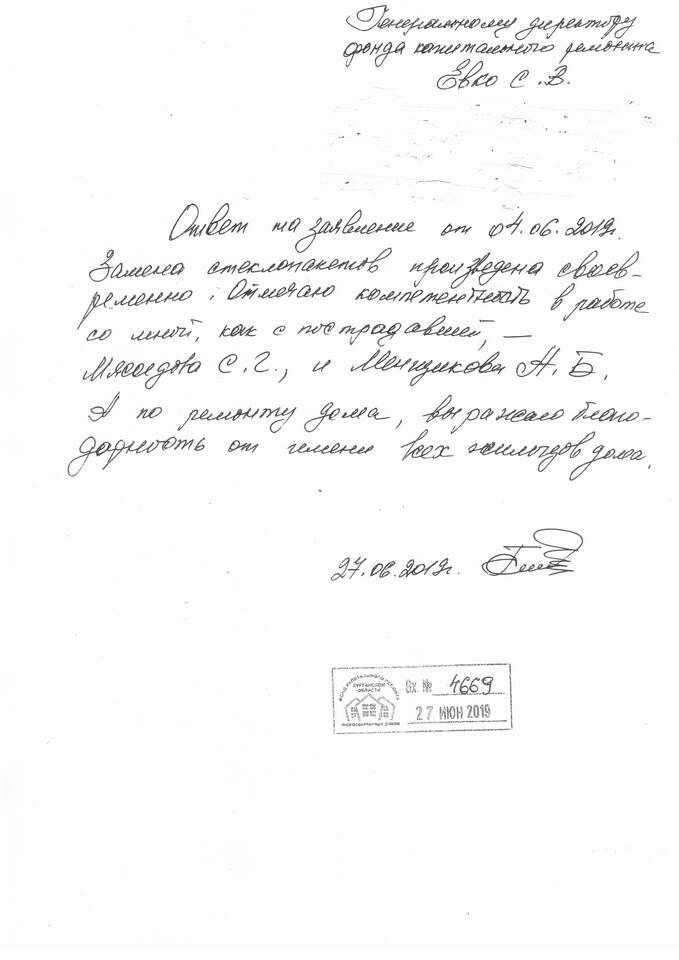 Генеральному директору
фонда капитального ремонта
Евко С.В.
Ответ на заявление от 04.06.2019г.
Замена стеклопакетов произведена своев-
ременно. Отмечаю компетентность в работе
со мной, как с пострадавшей, —
Мясоедова С.Г., и Менщикова А.Б.
А по ремонту дома, выражаю благо-
дарность от имени всех жильцов дома.
27.06.2019г.
ФОНД КАПИТАЛЬНОГО РЕМОНТА
КУРГАНСКОЙ
ОБЛАСТИ
МНОГОКВАРТИРНЫХ ДОМОВ
Вх. № 4669
27 ИЮН 2019